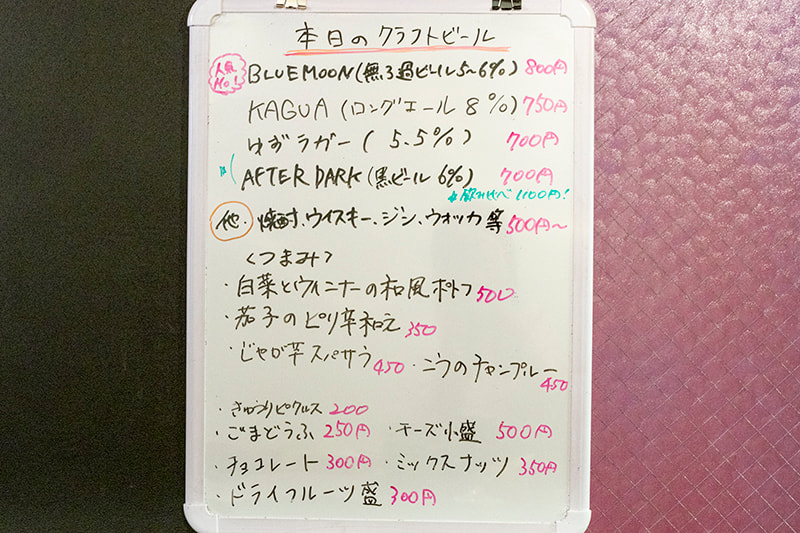 本日のクラフトビール
人気No.1 BLUEMOON(無ろ過ビール5~6%) 800円
KAGUA (ロングエール 8%) 750円
ゆずラガー ( 5.5%) 700円
AFTER DARK (黒ビール 6%) 700円
飲み比べ 1100円!
他・焼酎、ウイスキー、ジン、ウォッカ 等 500円~
<つまみ>
・白菜とウィンナーの和風ポトフ 500
・茄子のピリ辛和え 350
・じゃが芋スパサラ 450 ・ごうのチャンプルー 450
・きゅうりピクルス 200
・ごまどうふ 250円 ・チーズ小盛 500円
・チョコレート 300円 ・ミックスナッツ 350円
・ドライフルーツ盛 300円